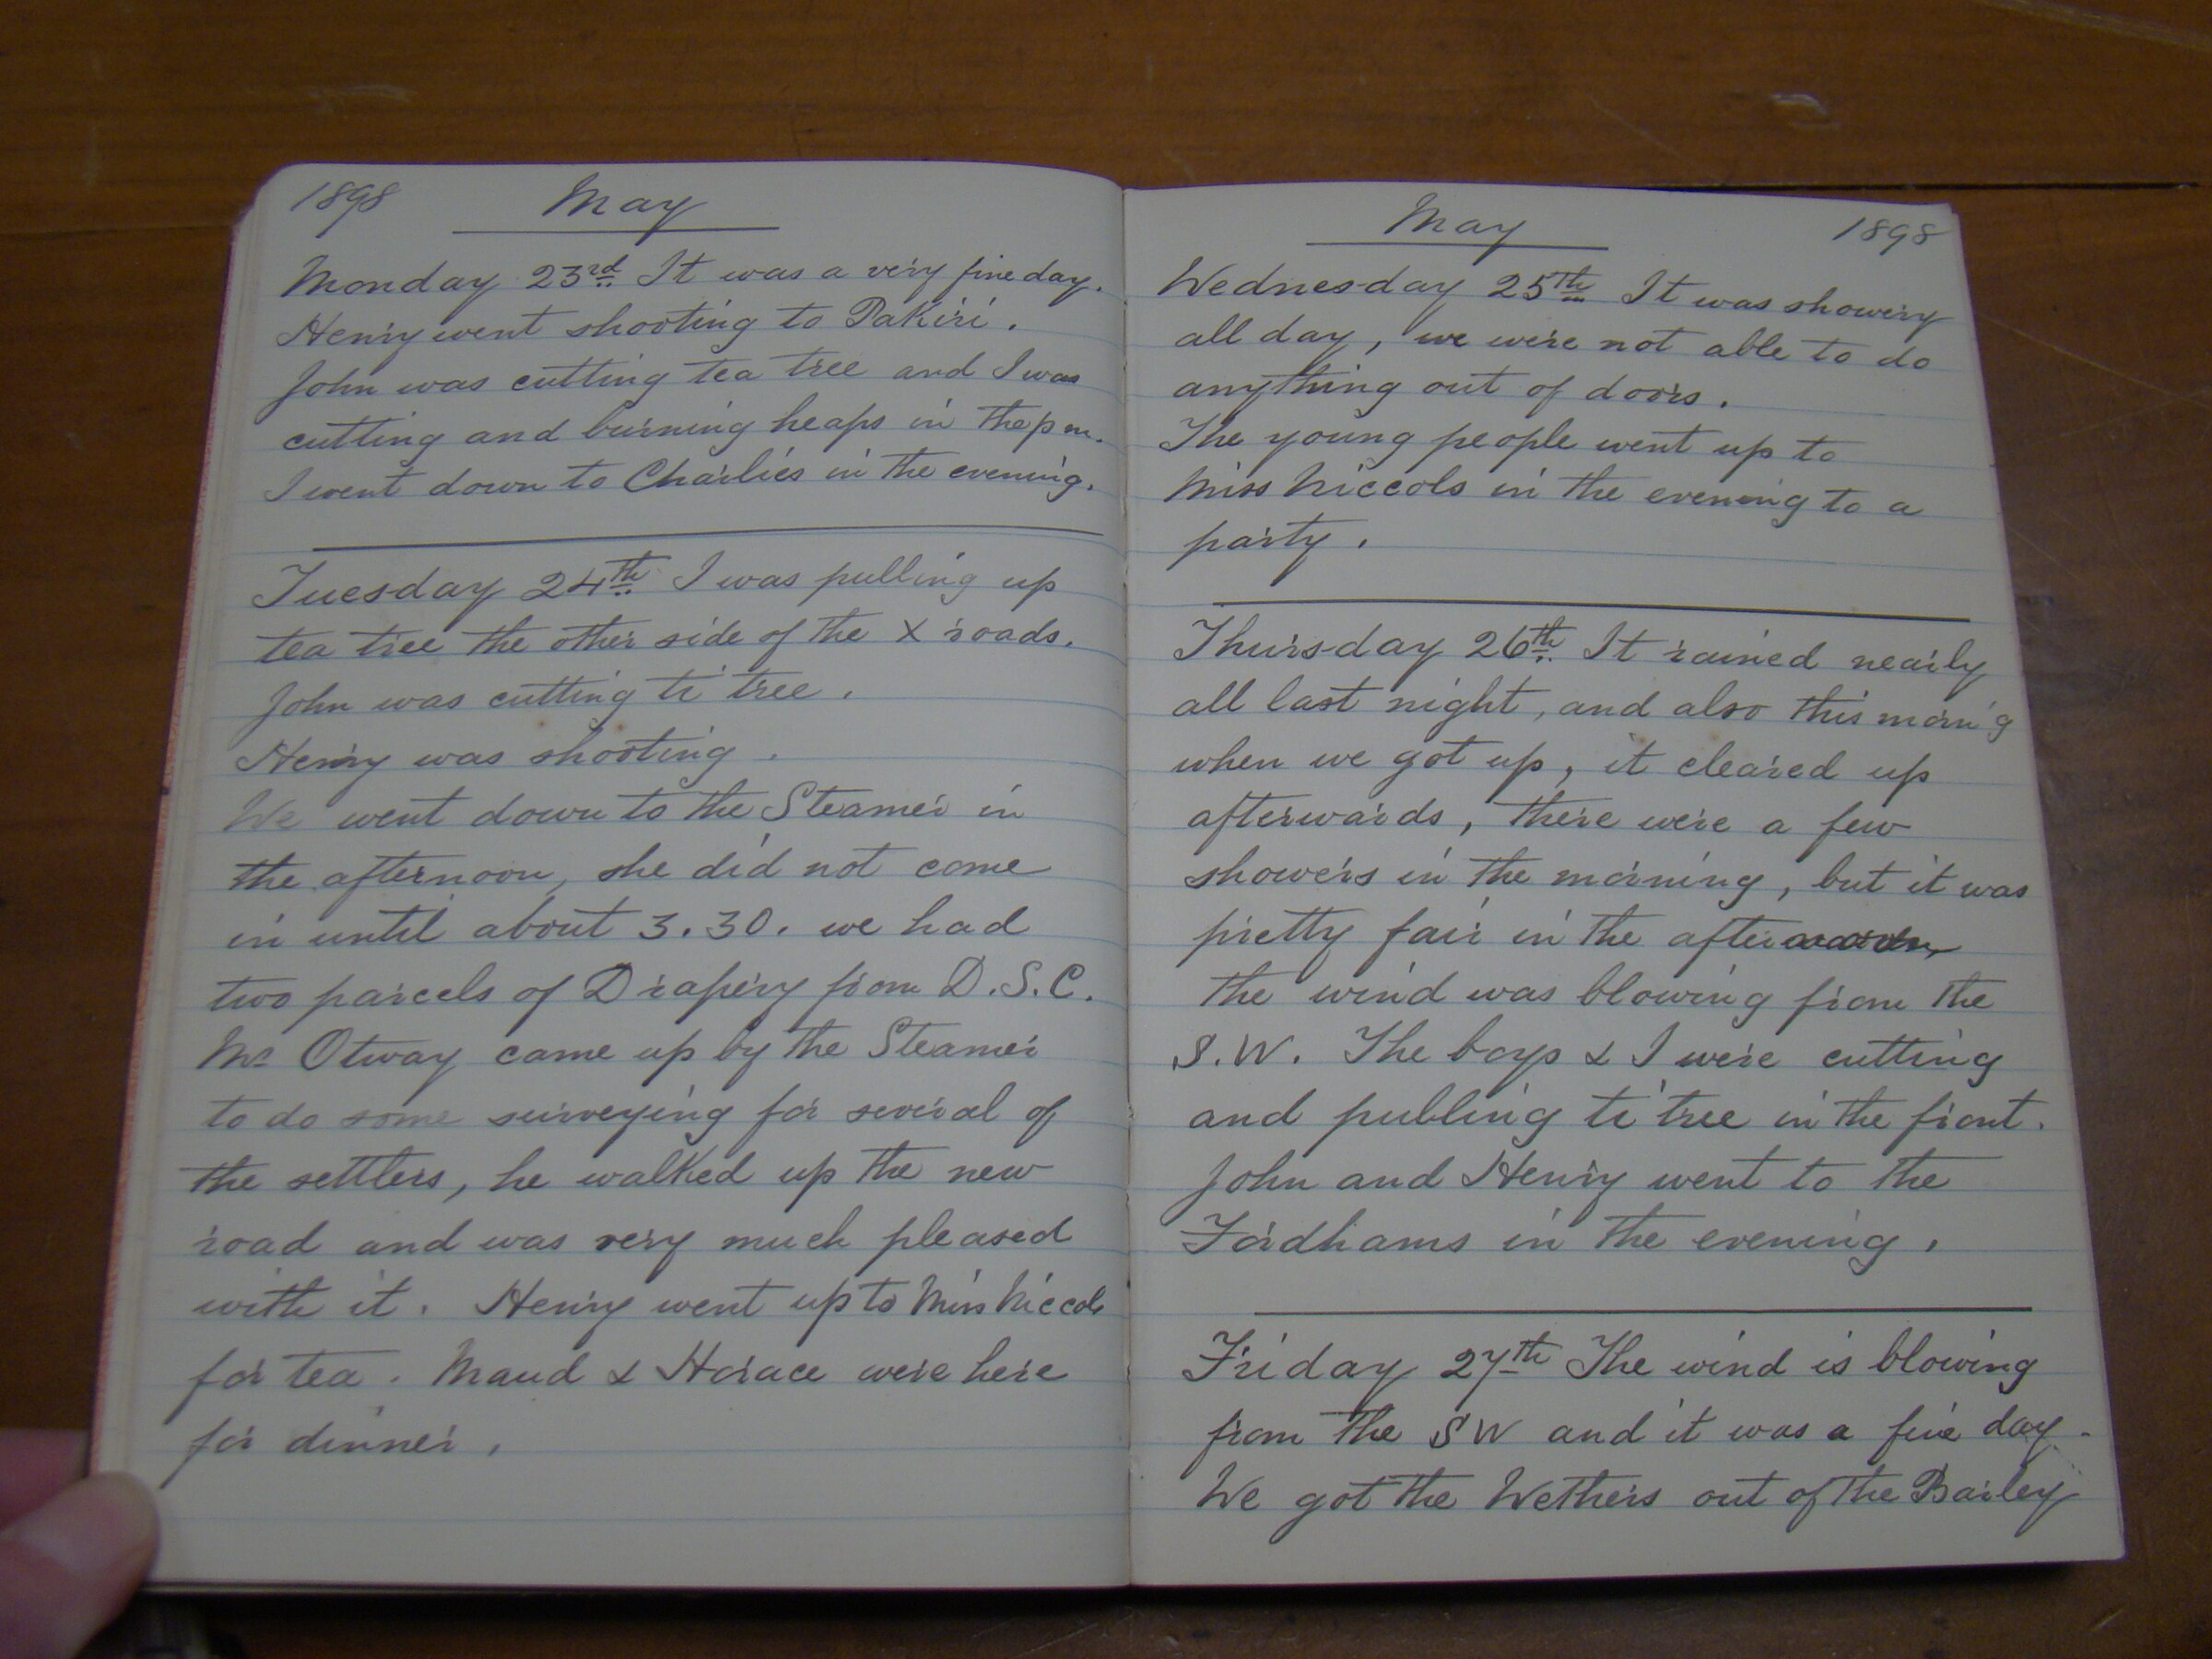 1898 May
Monday 23rd It was a very fine day.
Henry went shooting to Pakiri.
John was cutting tea tree and I was
cutting and burning heaps in the p m.
I went down to Charlies in the evening.
Tuesday 24th I was pulling up
tea tree the other side of the X roads.
John was cutting ti tree.
Henry was shooting.
We went down to the Steamer in
the afternoon, she did not come
in until about 3.30. we had
two parcels of Drapery from D.S.C.
Mr Otway came up by the Steamer
to do some surveying for several of
the settlers, he walked up the new
road and was very much pleased
with it. Henry went up to Miss Niccols
for tea. Maud & Horace were here
for dinner.
May 1898
Wednesday 25th It was showery
all day, we were not able to do
anything out of doors.
The young people went up to
Miss Niccols in the evening to a
party.
Thursday 26th It rained nearly
all last night, and also this morn'g
when we got up, it cleared up
afterwards, there were a few
showers in the morning, but it was
pretty fair in the afternoon,
the wind was blowing from the
S.W. The boys & I were cutting
and pulling ti tree in the front.
John and Henry went to the
Fordhams in the evening.
Friday 27th The wind is blowing
from the SW and it was a fine day.
We got the Wethers out of the Barley